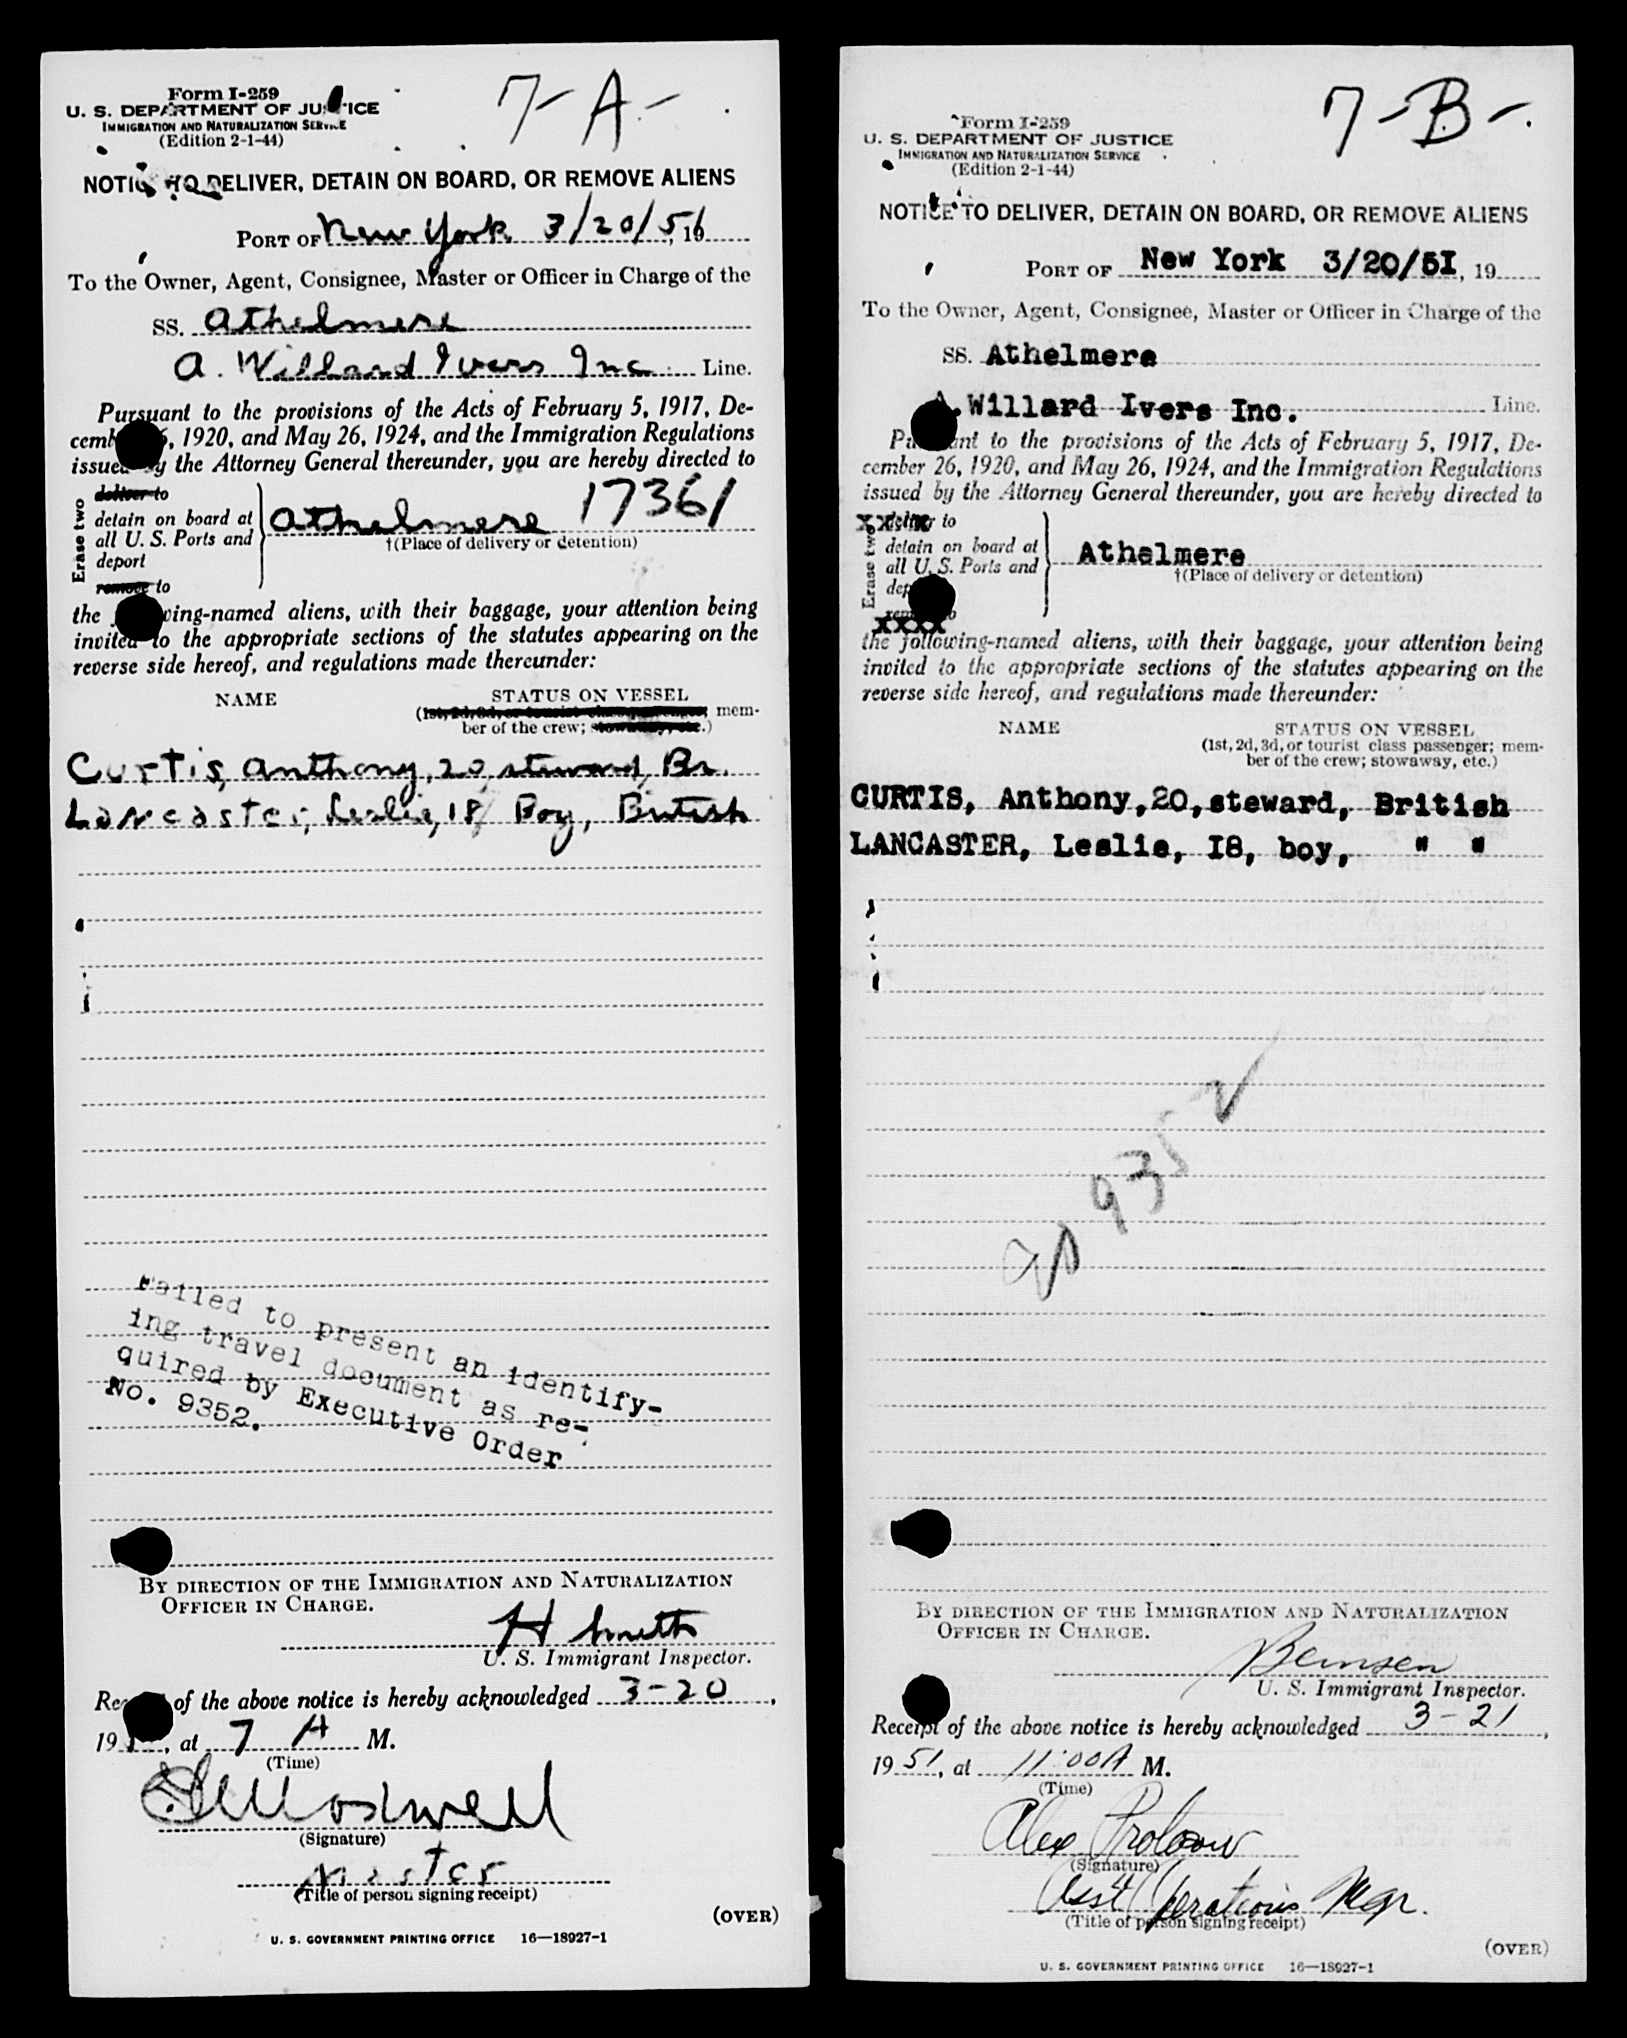 7-A-
Form I-259
U. S. DEPARTMENT OF JUSTICE
IMMIGRATION AND NATURALIZATION SERVICE
(Edition 2-1-44)
NOTICE TO DELIVER, DETAIN ON BOARD, OR REMOVE ALIENS
PORT OF New York 3/20/51, 19
To the Owner, Agent, Consignee, Master or Officer in Charge of the
SS. Athelmere
A. Willard Ivers Inc. Line.
Pursuant to the provisions of the Acts of February 5, 1917, De-
cember 26, 1920, and May 26, 1924, and the Immigration Regulations
issued by the Attorney General thereunder, you are hereby directed to
Erase two
deliver to
detain on board at
all U. S. Ports and
deport
remove to
Athelmere 17361
†(Place of delivery or detention)
the following-named aliens, with their baggage, your attention being
invited to the appropriate sections of the statutes appearing on the
reverse side hereof, and regulations made thereunder:
NAME STATUS ON VESSEL
(1st, 2d, 3d, or tourist class passenger; mem-
ber of the crew; stowaway, etc.)
Curtis, Anthony, 20, steward, Br.
Lancaster, Leslie, 18, Boy, British
Failed to present an identify-
ing travel document as re-
quired by Executive Order
No. 9352.
BY DIRECTION OF THE IMMIGRATION AND NATURALIZATION
OFFICER IN CHARGE.
H Smith
U. S. Immigrant Inspector.
Receipt of the above notice is hereby acknowledged 3-20,
19, at 7 A M.
(Time)
(Signature)
Master
(Title of person signing receipt)
(OVER)
U. S. GOVERNMENT PRINTING OFFICE 16—18927-1
7-B-
Form I-259
U. S. DEPARTMENT OF JUSTICE
IMMIGRATION AND NATURALIZATION SERVICE
(Edition 2-1-44)
NOTICE TO DELIVER, DETAIN ON BOARD, OR REMOVE ALIENS
PORT OF New York 3/20/5I, 19
To the Owner, Agent, Consignee, Master or Officer in Charge of the
SS. Athelmere
A. Willard Ivers Inc. Line.
Pursuant to the provisions of the Acts of February 5, 1917, De-
cember 26, 1920, and May 26, 1924, and the Immigration Regulations
issued by the Attorney General thereunder, you are hereby directed to
Erase two
deliver to
detain on board at
all U. S. Ports and
deport
remove to
xxxx
Athelmere
†(Place of delivery or detention)
the following-named aliens, with their baggage, your attention being
invited to the appropriate sections of the statutes appearing on the
reverse side hereof, and regulations made thereunder:
NAME STATUS ON VESSEL
(1st, 2d, 3d, or tourist class passenger; mem-
ber of the crew; stowaway, etc.)
CURTIS, Anthony, 20, steward, British
LANCASTER, Leslie, I8, boy, " "
9352
BY DIRECTION OF THE IMMIGRATION AND NATURALIZATION
OFFICER IN CHARGE.
Bemsen
U. S. Immigrant Inspector.
Receipt of the above notice is hereby acknowledged 3-21,
19 51, at 11:00 A M.
(Time)
Alex
(Signature)
Ass't Operations Mgr.
(Title of person signing receipt)
(OVER)
U. S. GOVERNMENT PRINTING OFFICE 16—18927-1